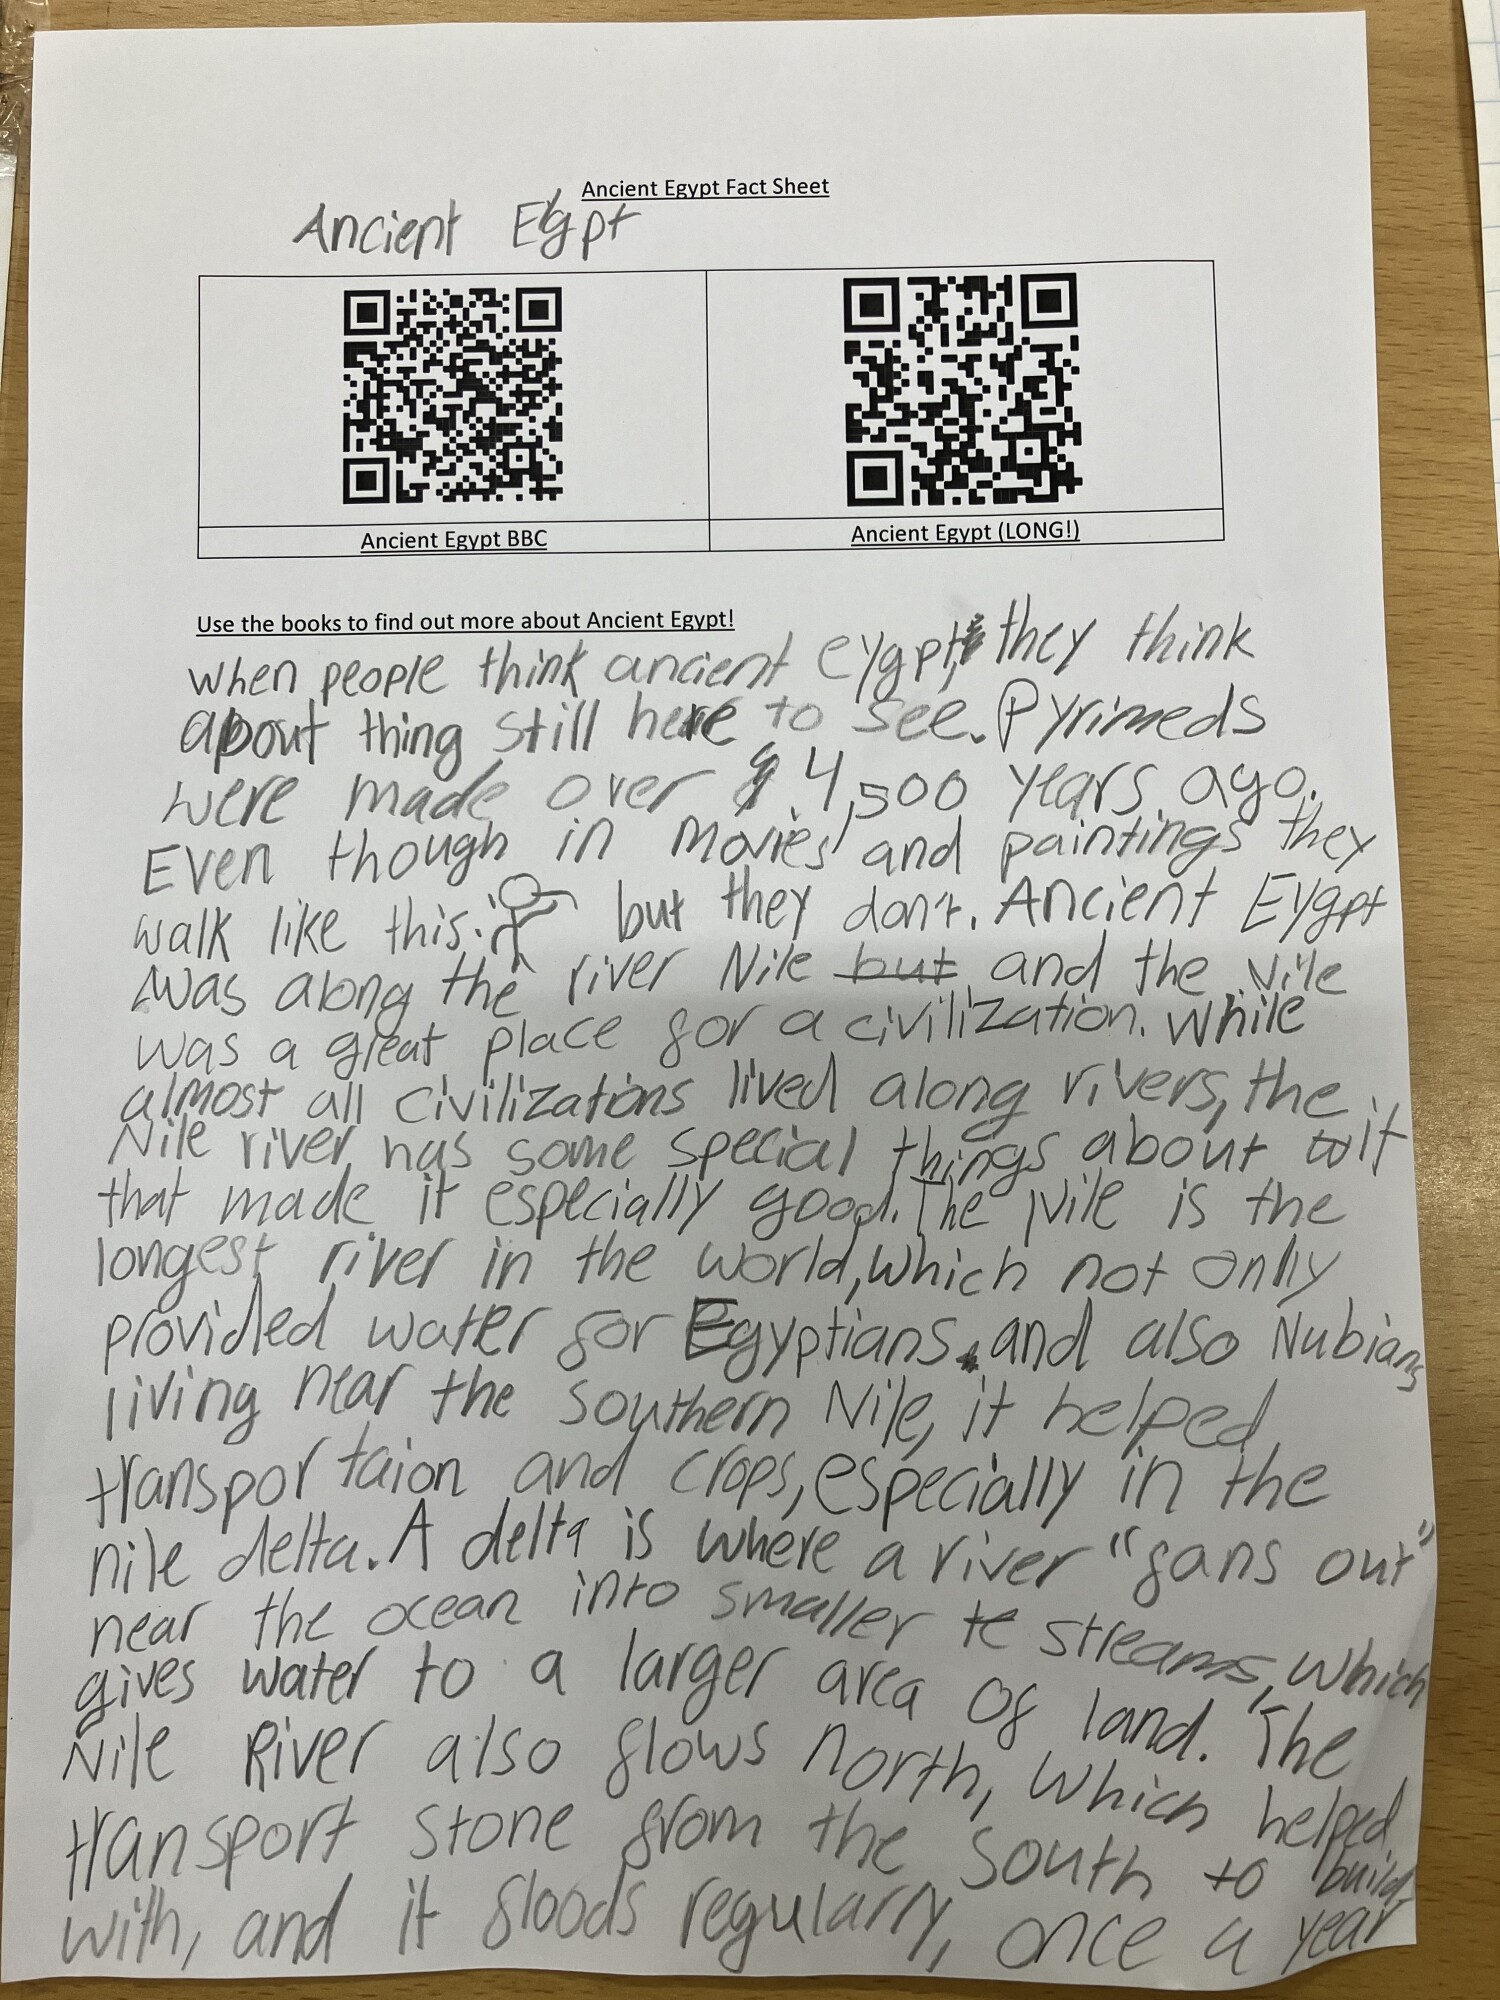 Ancient Egypt Fact Sheet
Ancient Egpt
Ancient Egypt BBC
Ancient Egypt (LONG!)
Use the books to find out more about Ancient Egypt!
when people think ancient eygpt, they think
about thing still here to see. Pyrimeds
were made over 4,500 years ago.
Even though in movies and paintings they
walk like this: but they don't. Ancient Eygpt
was along the river Nile but and the Nile
was a great place for a civilization. While
almost all civilizations lived along rivers, the
Nile river has some special things about it
that made it especially good. The Nile is the
longest river in the world, which not only
provided water for Egyptians and also Nubians
living near the southern Nile, it helped
transportaion and crops, especially in the
nile delta. A delta is where a river "fans out"
near the ocean into smaller te streams, which
gives water to a larger area of land. The
Nile River also flows north, which helped
transport stone from the south to build
with, and it floods regularly, once a year